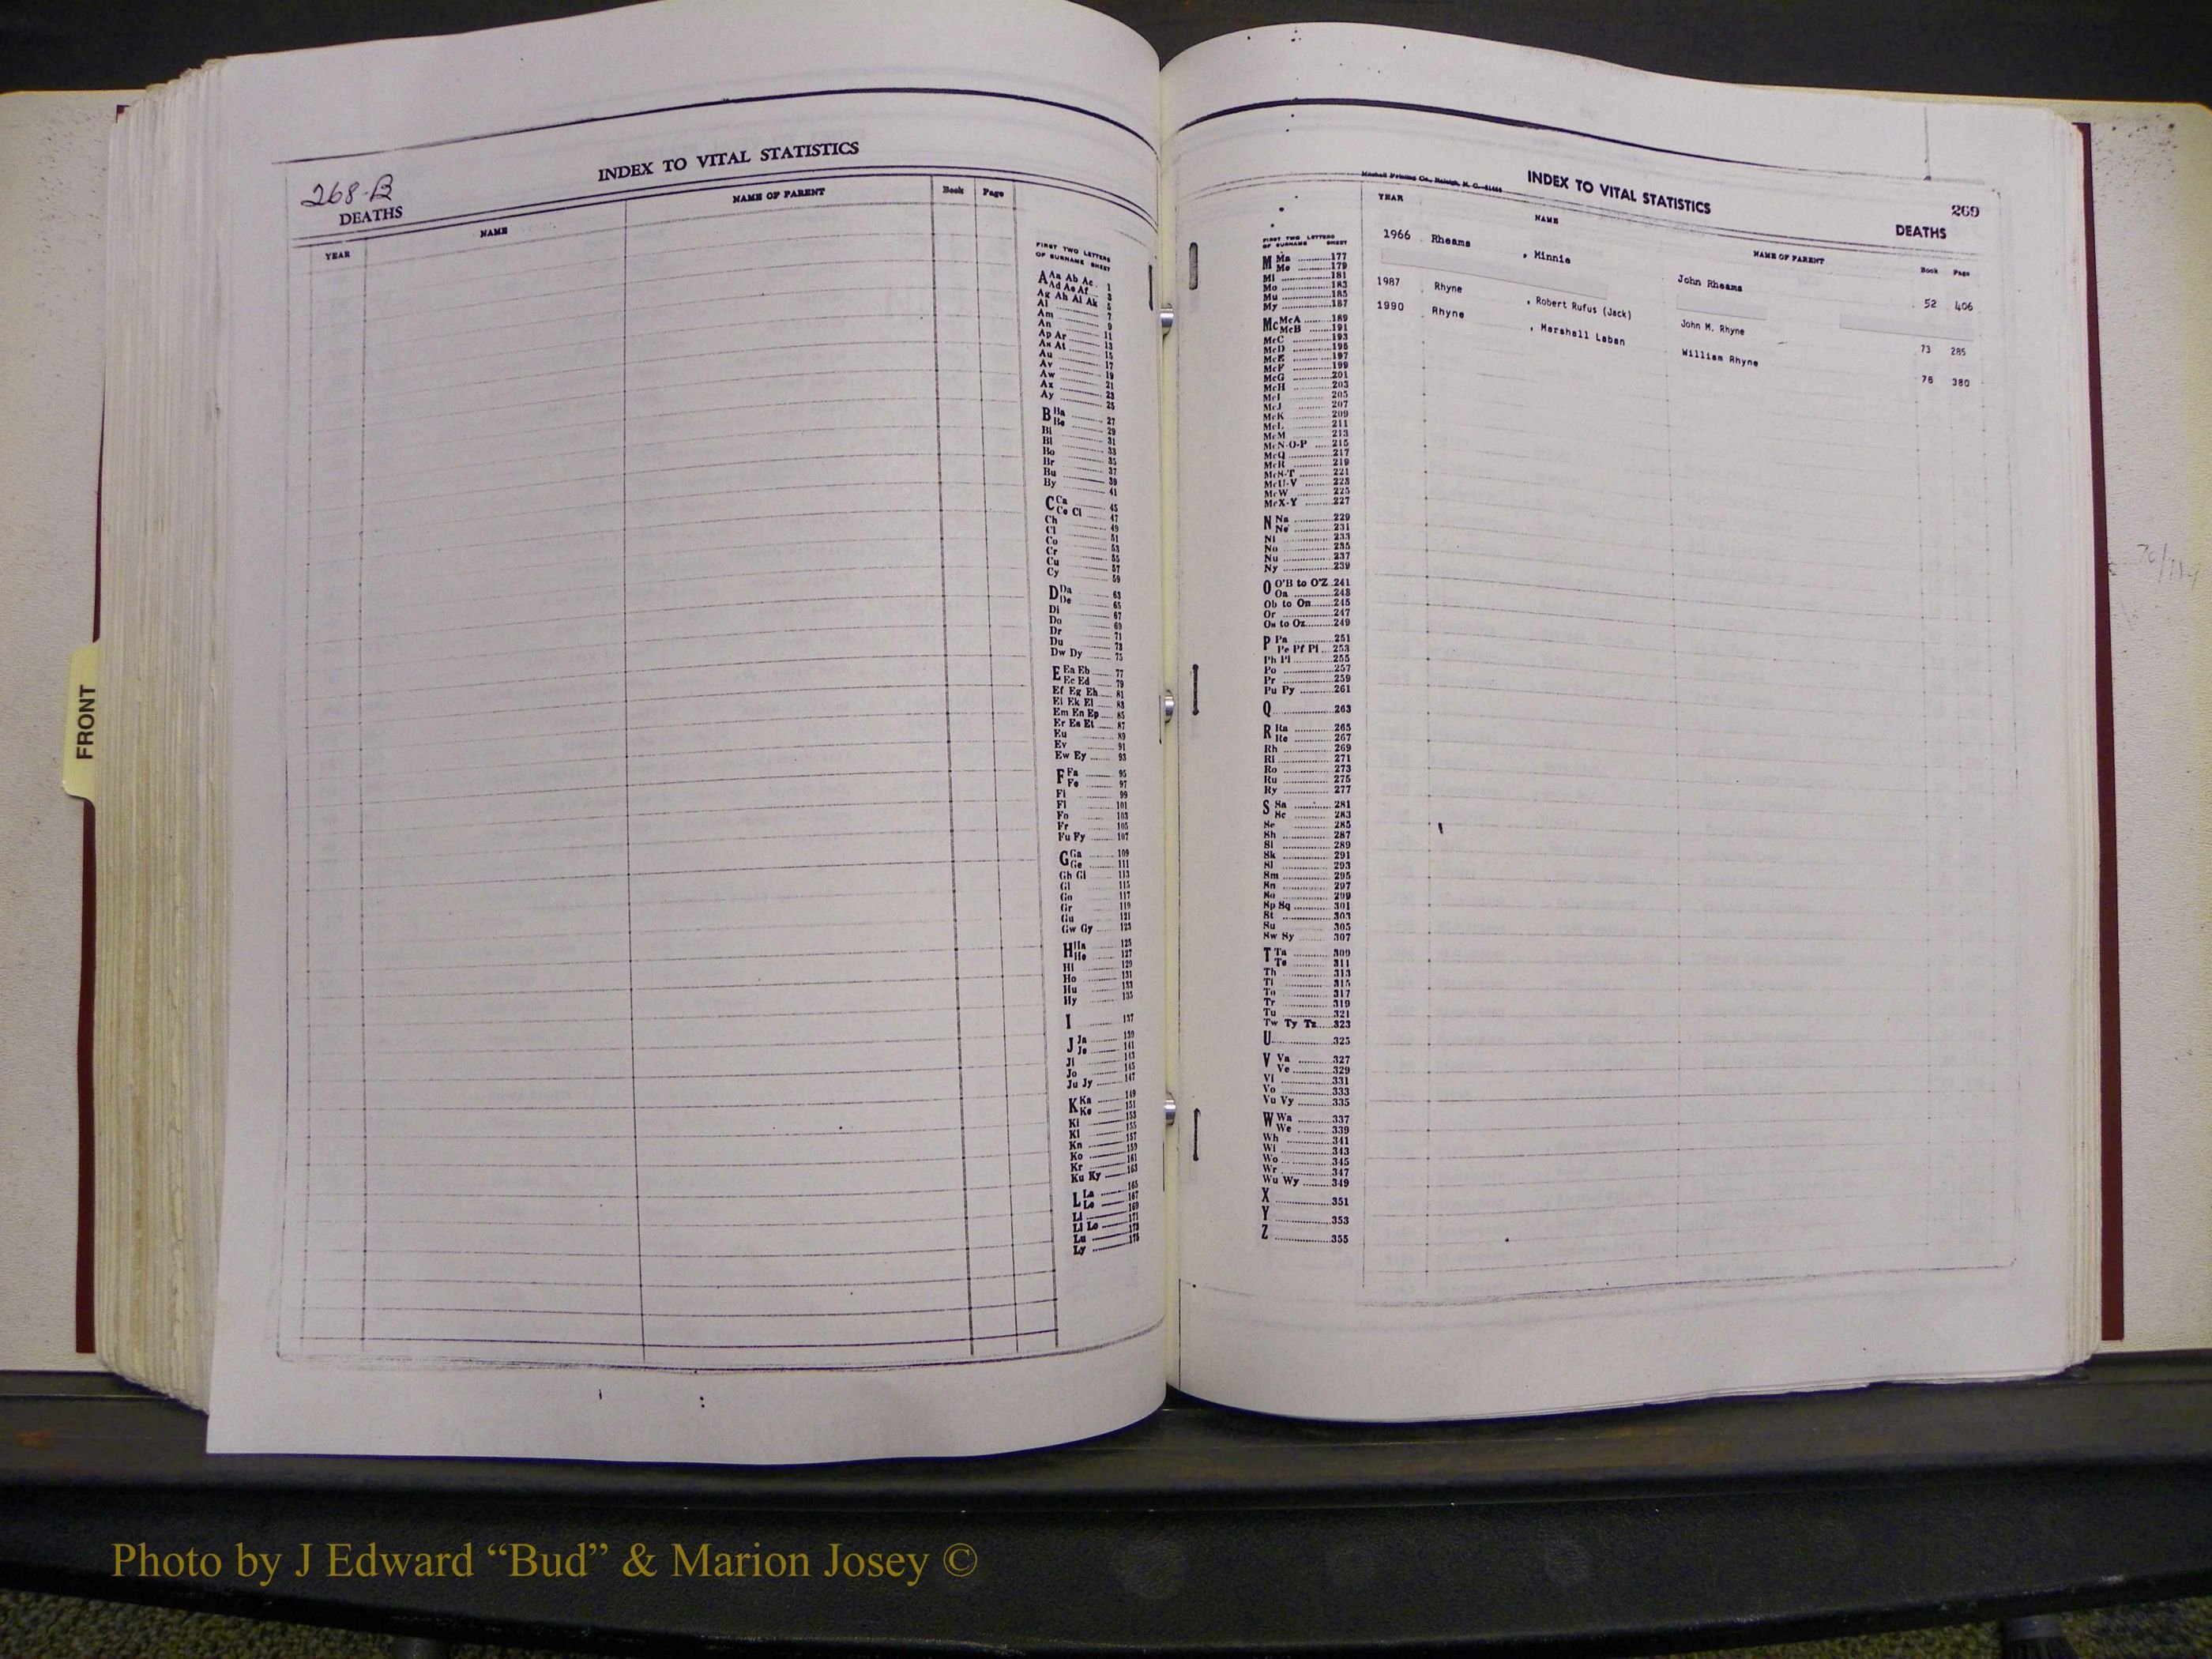 268-B
DEATHS
INDEX TO VITAL STATISTICS
YEAR NAME NAME OF PARENT Book Page
FIRST TWO LETTERS
OF SURNAME SHEET
A Aa Ab Ac 1
Ad Ae Af 3
Ag Ah Ai Ak 5
Al 7
Am 9
An 11
Ap Ar 13
As At 15
Au 17
Av 19
Aw 21
Ax 23
Ay 25
B Ba 27
Be 29
Bi 31
Bl 33
Bo 35
Br 37
Bu 39
By 41
C Ca 45
Ce Ci 47
Ch 49
Cl 51
Co 53
Cr 55
Cu 57
Cy 59
D Da 63
De 65
Di 67
Do 69
Dr 71
Du 73
Dw Dy 75
E Ea Eb 77
Ec Ed 79
Ef Eg Eh 81
Ei Ek El 83
Em En Ep 85
Er Es Et 87
Eu 89
Ev 91
Ew Ey 93
F Fa 95
Fe 97
Fi 99
Fl 101
Fo 103
Fr 105
Fu Fy 107
G Ga 109
Ge 111
Gh Gi 113
Gl 115
Go 117
Gr 119
Gu 121
Gw Gy 123
H Ha 125
He 127
Hi 129
Ho 131
Hu 133
Hy 135
I 137
J Ja 139
Je 141
Ji 143
Jo 145
Ju Jy 147
K Ka 149
Ke 151
Ki 153
Kl 155
Kn 157
Ko 159
Kr 161
Ku Ky 163
L La 165
Le 167
Li 169
Ll Lo 171
Lu 173
Ly 175
FRONT
Mitchell Printing Co., Raleigh, N. C.
INDEX TO VITAL STATISTICS
269
DEATHS
YEAR NAME NAME OF PARENT Book Page
1966 Rheams , Minnie John Rheams 52 406
1987 Rhyne , Robert Rufus (Jack) John M. Rhyne 73 285
1990 Rhyne , Marshall Laban William Rhyne 76 380
FIRST TWO LETTERS
OF SURNAME SHEET
M Ma 177
Me 179
Mi 181
Mo 183
Mu 185
My 187
Mc McA 189
McB 191
McC 193
McD 195
McE 197
McF 199
McG 201
McH 203
McI 205
McJ 207
McK 209
McL 211
McM 213
McN-O-P 215
McQ 217
McR 219
McS-T 221
McU-V 223
McW 225
McX-Y 227
N Na 229
Ne 231
Ni 233
No 235
Nu 237
Ny 239
O O'B to O'Z 241
Oa 243
Ob to On 245
Or 247
Os to Oz 249
P Pa 251
Pe Pf Pi 253
Ph Pl 255
Po 257
Pr 259
Pu Py 261
Q 263
R Ra 265
Re 267
Rh 269
Ri 271
Ro 273
Ru 275
Ry 277
S Sa 281
Sc 283
Se 285
Sh 287
Si 289
Sk 291
Sl 293
Sm 295
Sn 297
So 299
Sp Sq 301
St 303
Su 305
Sw Sy 307
T Ta 309
Te 311
Th 313
Ti 315
To 317
Tr 319
Tu 321
Tw Ty Tz 323
U 325
V Va 327
Ve 329
Vi 331
Vo 333
Vu Vy 335
W Wa 337
We 339
Wh 341
Wi 343
Wo 345
Wr 347
Wu Wy 349
X 351
Y 353
Z 355
Photo by J Edward “Bud” & Marion Josey ©